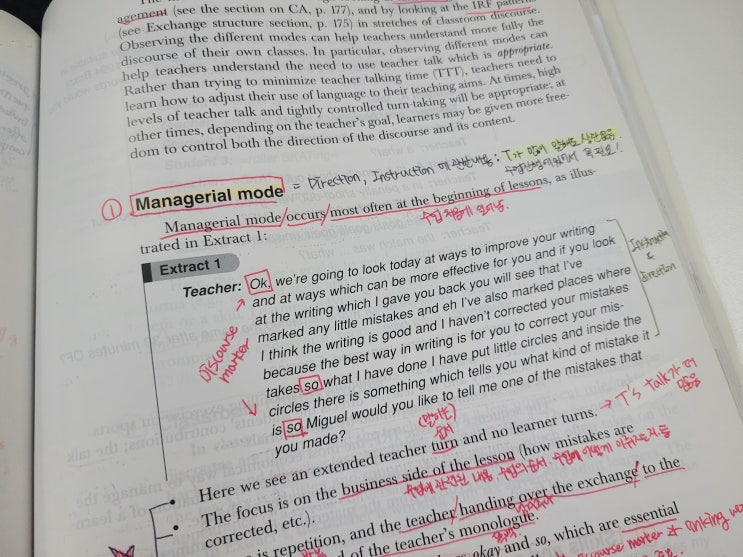 agement (see the section on CA, p. 177), and by looking at the IRF patterns
(see Exchange structure section, p. 175) in stretches of classroom discourse.
Observing the different modes can help teachers understand more fully the
discourse of their own classes. In particular, observing different modes can
help teachers understand the need to use teacher talk which is appropriate.
Rather than trying to minimize teacher talking time (TTT), teachers need to
learn how to adjust their use of language to their teaching aims. At times, high
levels of teacher talk and tightly controlled turn-taking will be appropriate; at
other times, depending on the teacher's goal, learners may be given more free-
dom to control both the direction of the discourse and its content.
① Managerial mode = Direction, Instruction에 관한 내용 : T가 말이
Managerial mode occurs most often at the beginning of lessons, as illus-
trated in Extract 1:
Extract 1
Instruction & Direction
Teacher: Ok, we're going to look today at ways to improve your writing
and at ways which can be more effective for you and if you look
at the writing which I gave you back you will see that I've
marked any little mistakes and eh I've also marked places where
I think the writing is good and I haven't corrected your mistakes
because the best way in writing is for you to correct your mis-
takes so what I have done I have put little circles and inside the
circles there is something which tells you what kind of mistake it
is so Miguel would you like to tell me one of the mistakes that
you made?
Discourse marker
Here we see an extended teacher turn and no learner turns. → T's talk가
The focus is on the business side of the lesson (how mistakes are
corrected, etc.).
is repetition, and the teacher handing over the exchange to the
d of the teacher's monologue.
okay and so, which are essential
discourse marker